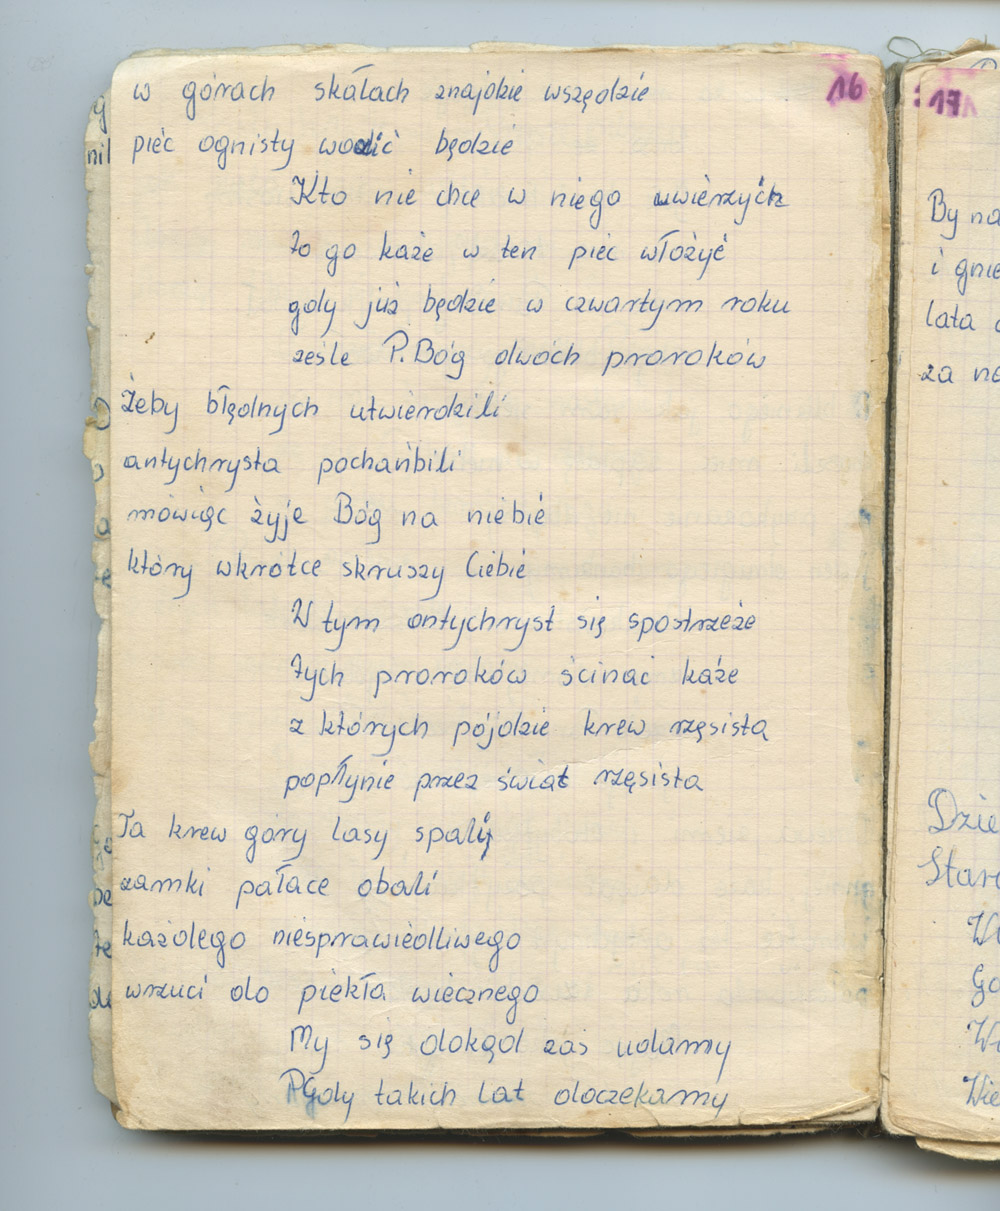 16
w górach skałach znajdzie wszędzie
pięć ognisty wodzić będzie
Kto nie chce w niego uwierzyć
to go każe w ten pieć włożyć
gdy już będzie w czwartym roku
ześle P. Bóg dwóch proroków
Żeby błędnych utwierdzili
antychrysta pochańbili
mówiąc żyje Bóg na niebie
który wkrótce skruszy Ciebie
W tym antychryst się spostrzeże
tych proroków ścinać każe
z których pójdzie krew rzęsista
popłynie przez świat rzęsista
Ta krew góry lasy spali
zamki pałace obali
każdego niesprawiedliwego
wrzuci do piekła wiecznego
My się dokąd zaś udamy
Gdy takich lat doczekamy
17
By na
i gnie
lata
za
Dzie
Star
Wi
Go
Wi
Wie